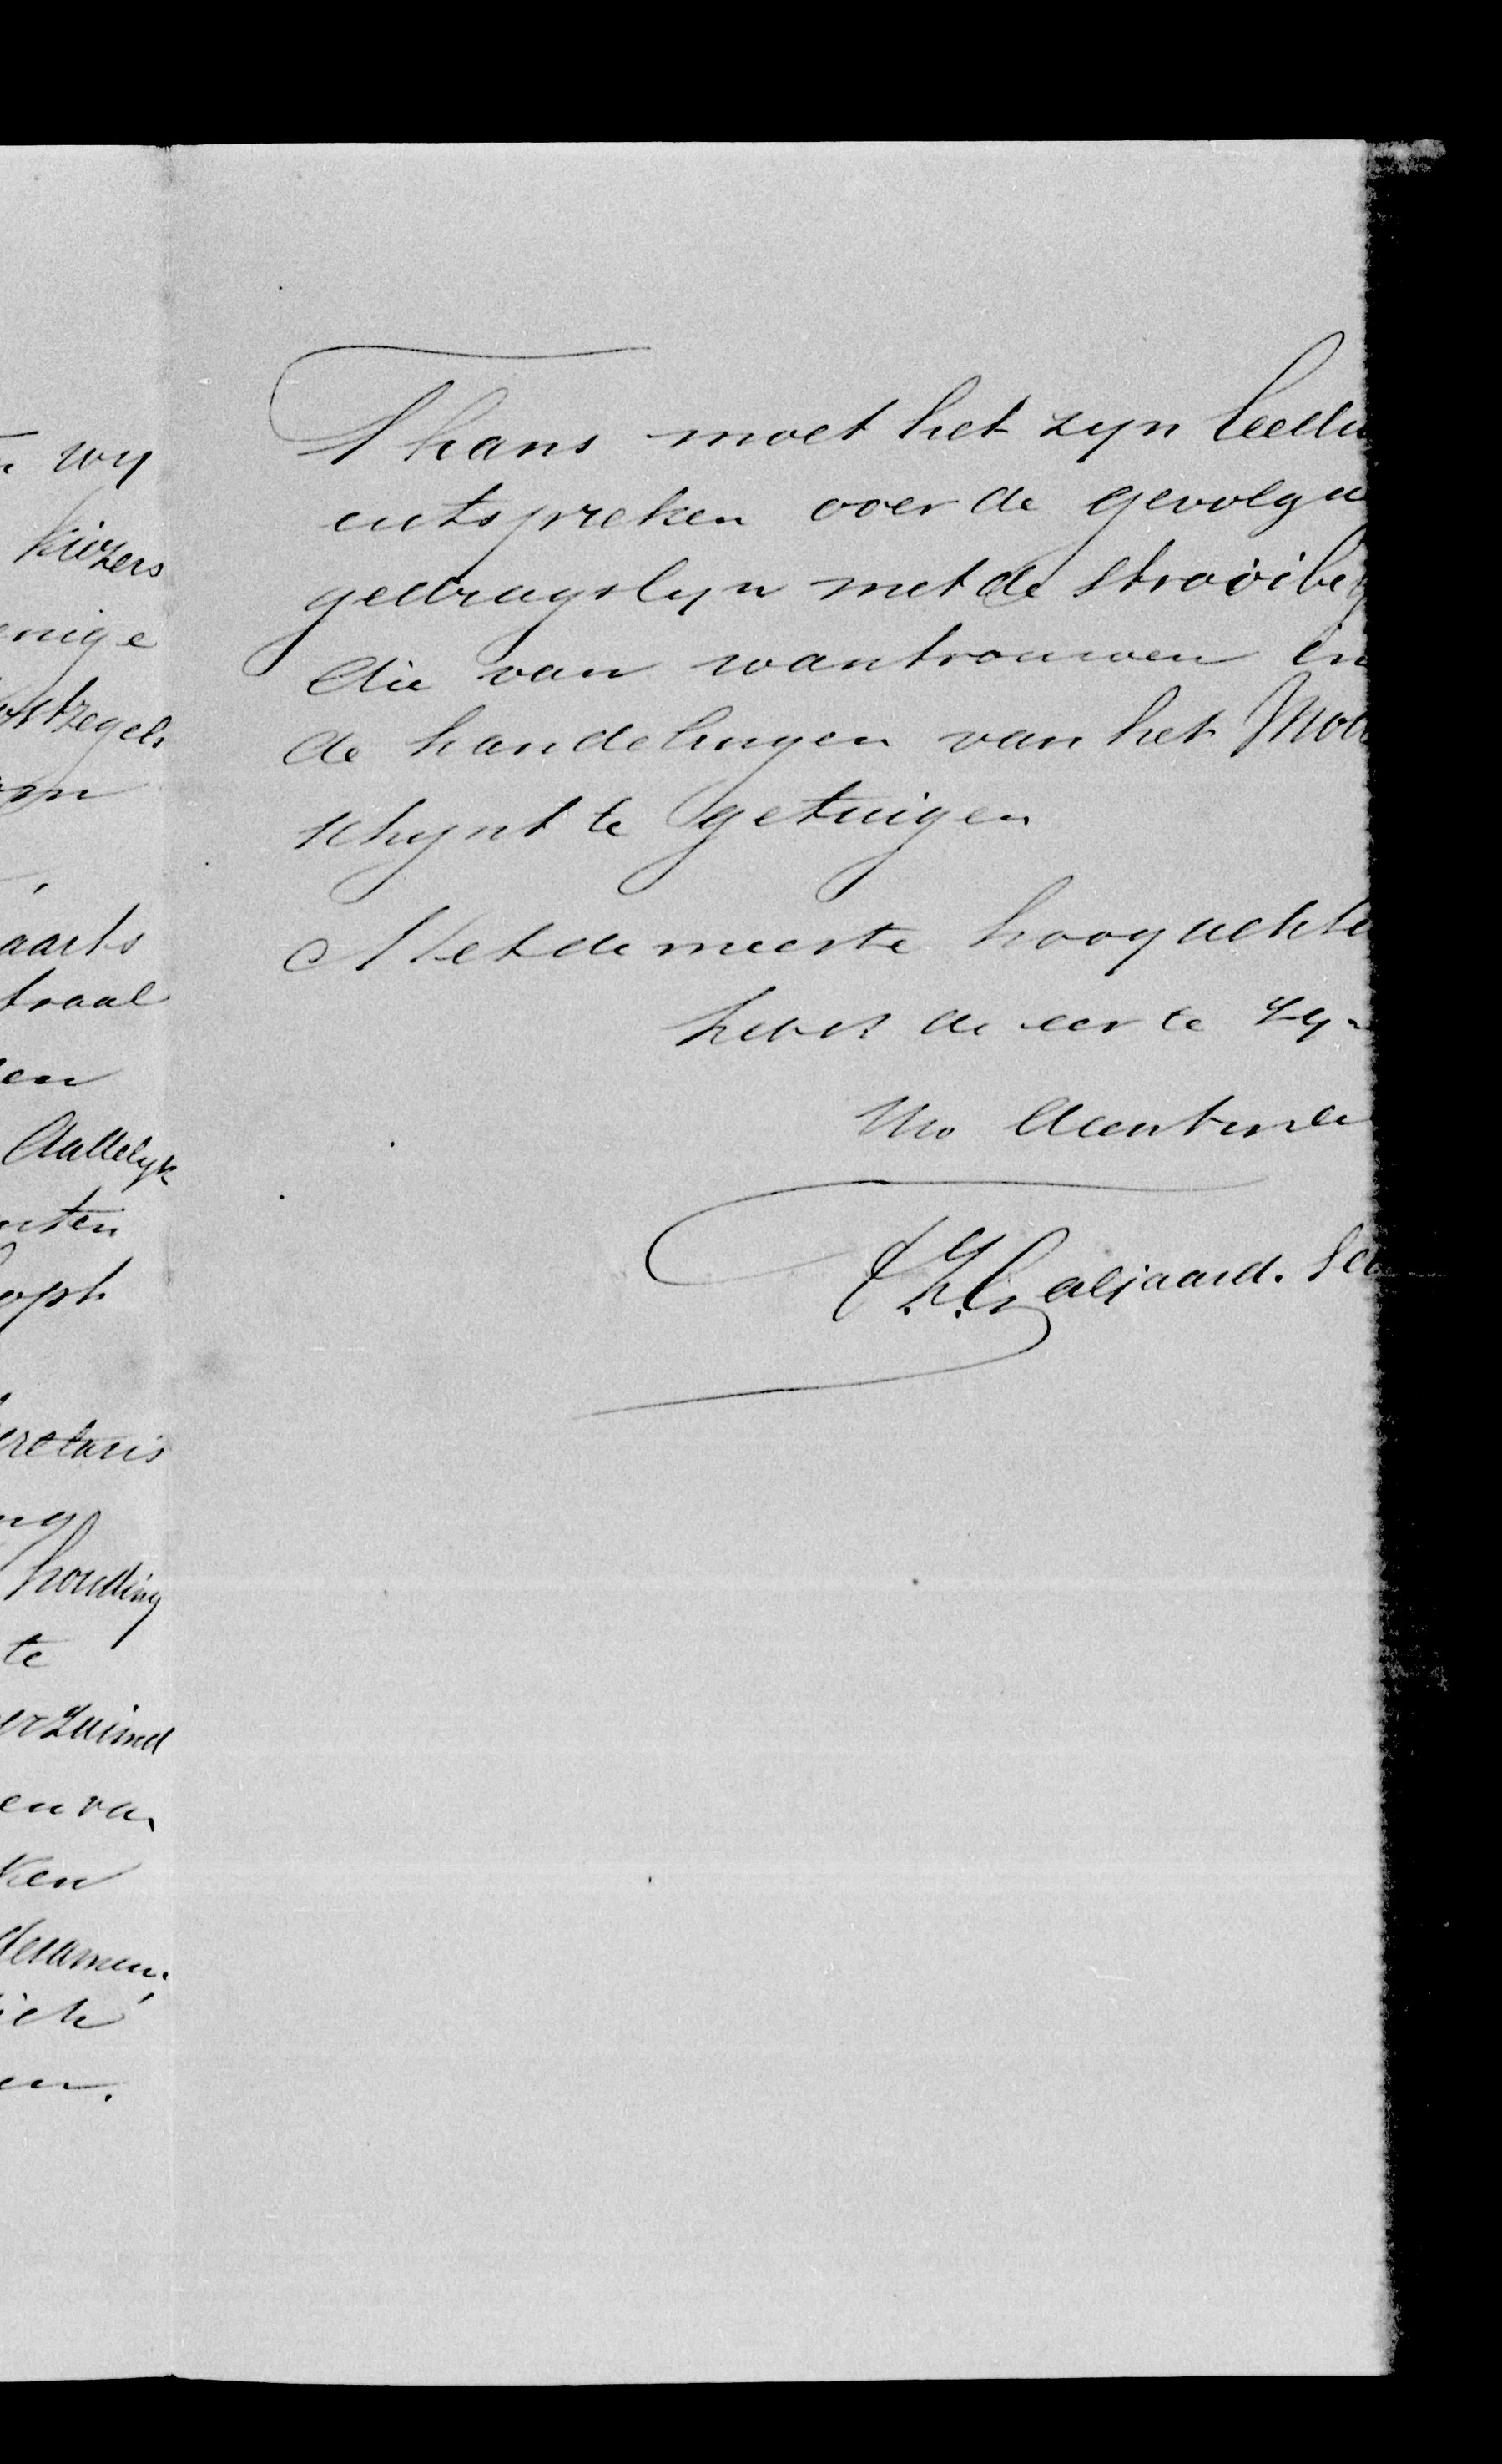 n wy
kiezers
enige
ostzegels
om
aarts
traal
en
dadelyk
nten
oph
cretaris
ng
houding
te
erzuimd
en van
ken
desamen,
ich
en.
Thans moet het zyn leedw
uitspreken over de gevolgde
gedragslyn met de strooibi
die van wantrouwen in
de handelingen van het Mod
schynt te getuigen
Met de meeste hoogachte
heb ik de eer te zyn
Uw dienstwde
J. H. Galjaard. Se